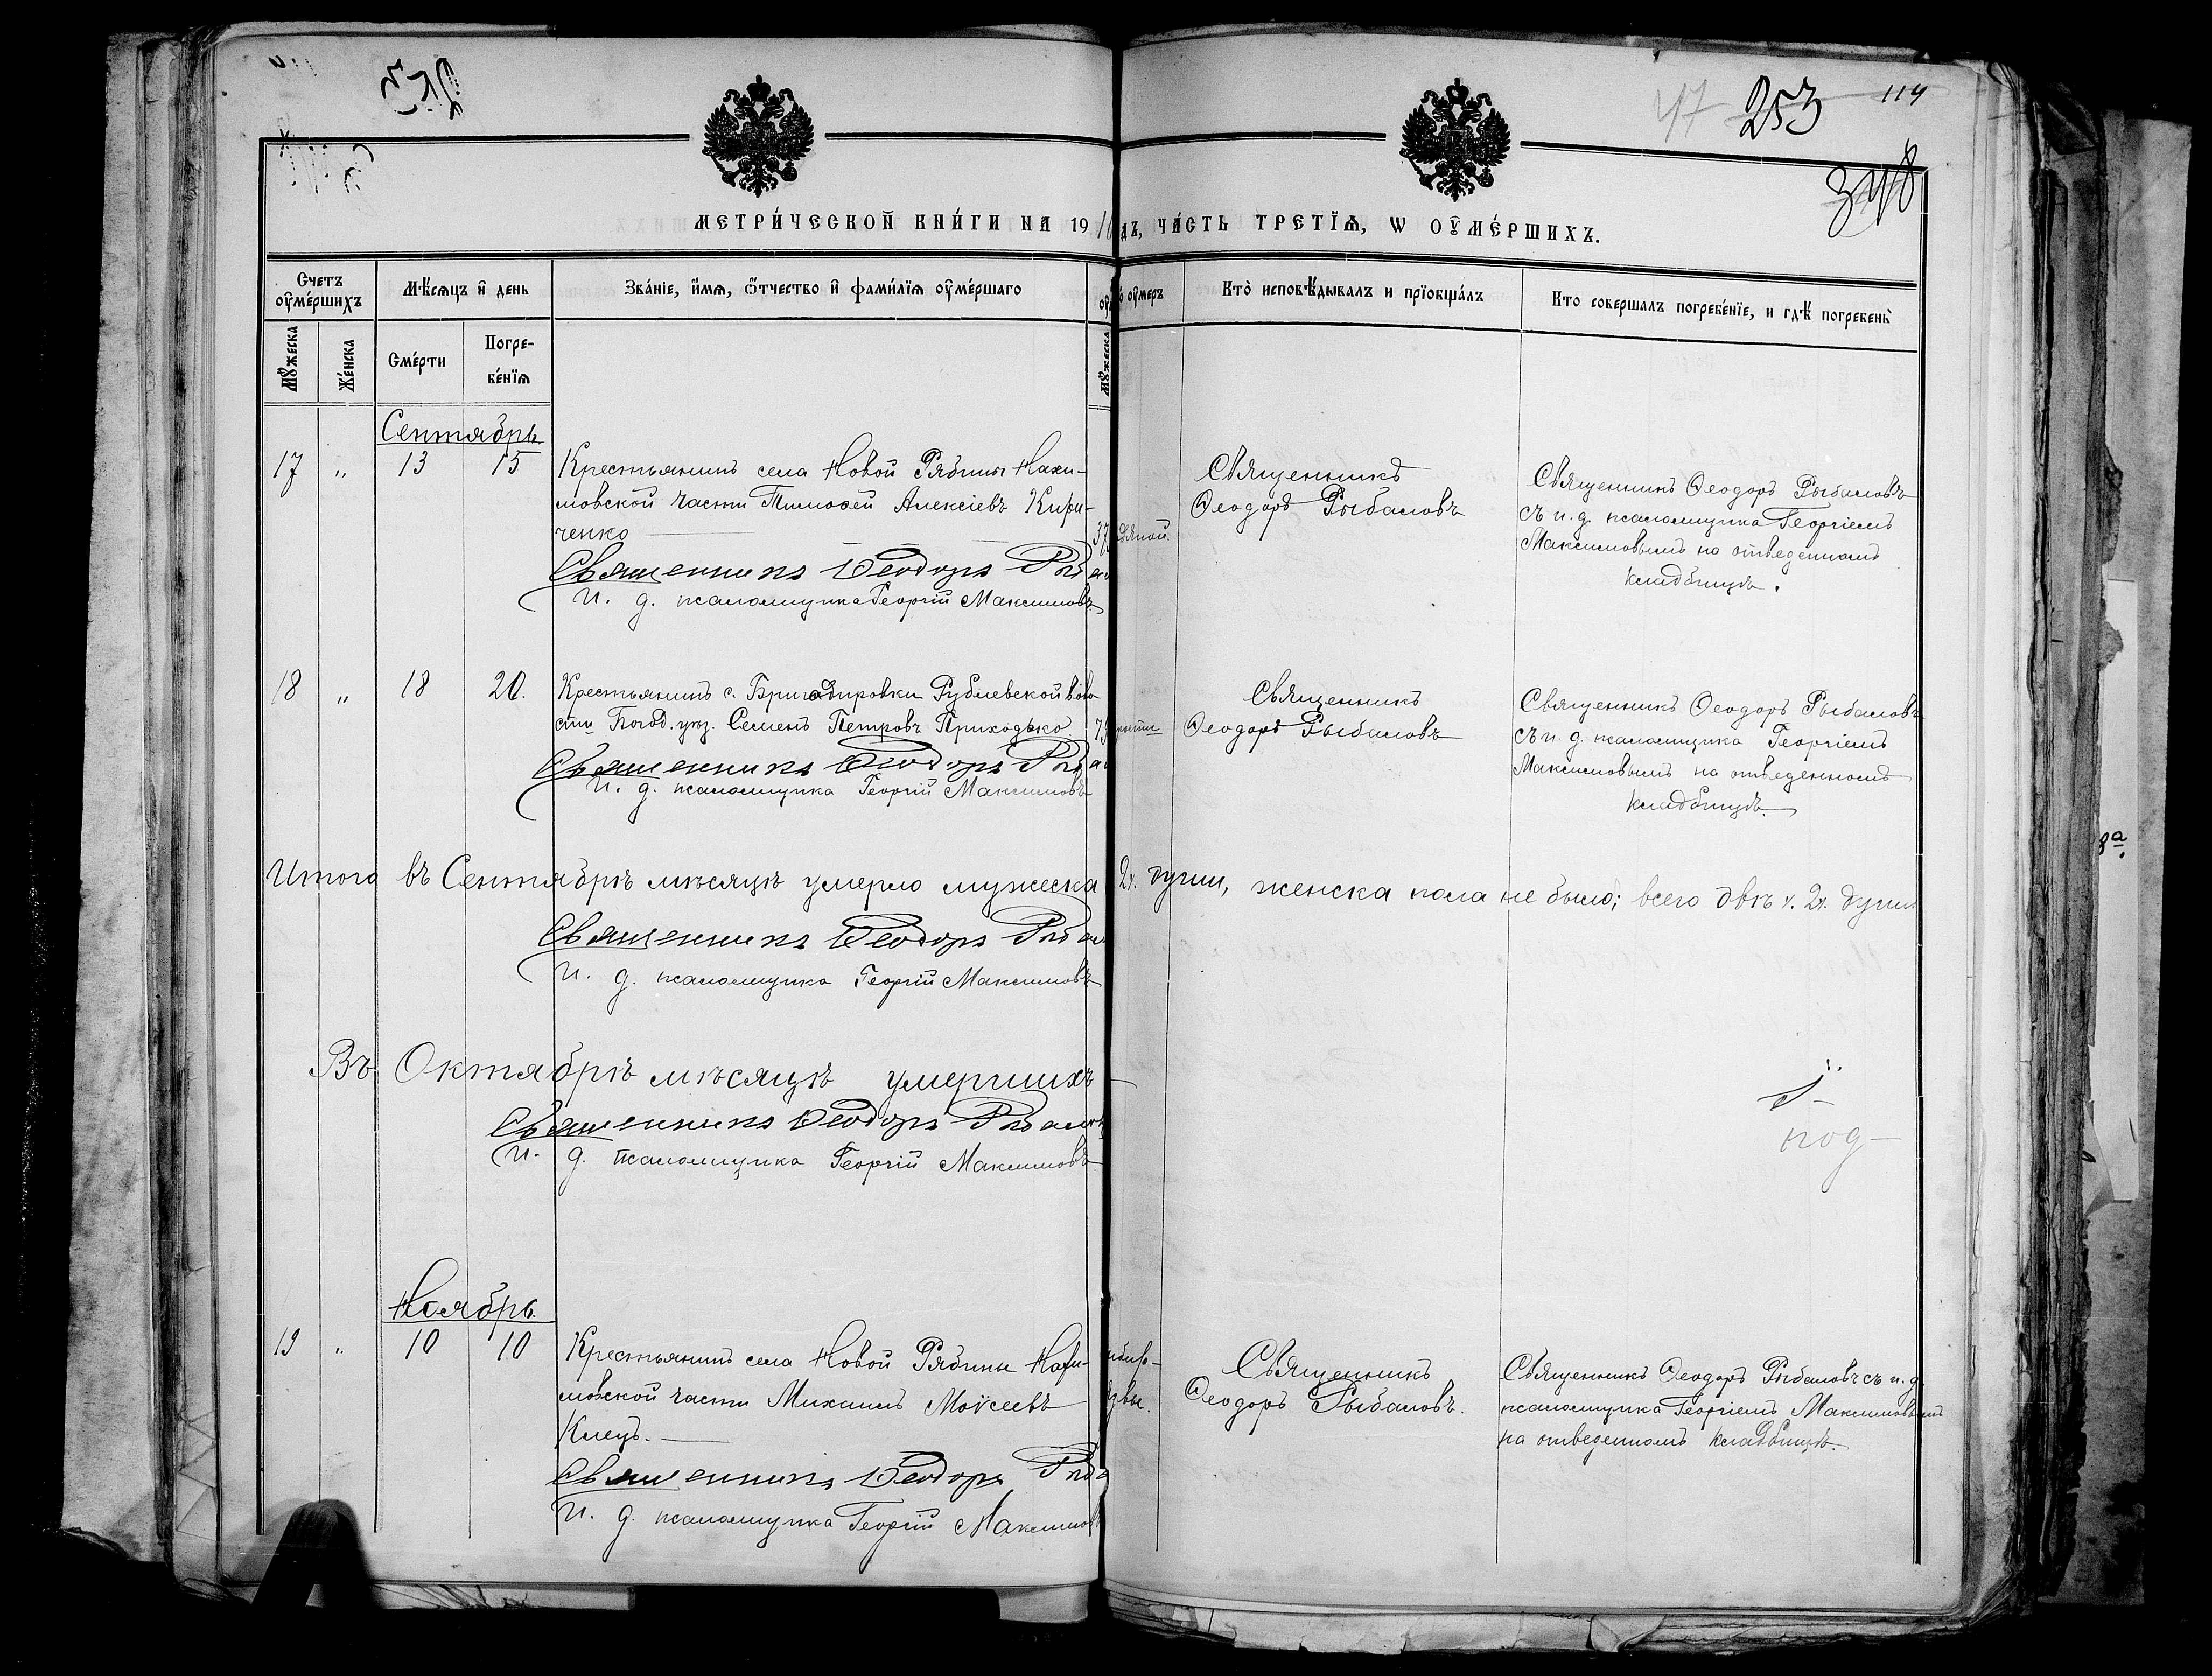 47 253 114
348
МЕТРИ́ЧЕСКОЙ КНИ́ГИ НА 191
дъ, ЧА́СТЬ ТРЕТІѦ, Ѡ ОУМЕ́РШИХЪ.
Счетъ оуме́ршихъ
Мѣсяцъ и день
Зва́ніе, и́мѧ, ѻтчество и фами́лїѧ оуме́ршаго
оумеръ
Кто̀ исповѣдывалъ и прїобща́лъ
Кто совершалъ погребе́нїе, и гдѣ погребенъ
Мꙋжеска
Же́нска
Сме́рти
Погре-
бе́нїѧ
Мꙋжеска
Сентябрь
17 " 13 15 Крестьянинъ села Новой Рябины Нахи-
мовской части Тимоѳей Алексіевъ Кири-
ченко 37
Священникъ Ѳеодоръ
И. д. псаломщика Георгій Максимовъ
Священникъ
Ѳеодоръ Рыбаловъ
Священникъ Ѳеодоръ Рыбаловъ
съ и. д. псаломщика Георгіемъ
Максимовымъ на отведенномъ
кладбищѣ.
18 " 18 20. Крестьянинъ с. Бригадировки Рублевской воло
сти Богод. уѣз. Семенъ Петровъ Приходько
Священникъ Ѳеодоръ
И. д. псаломщика Георгій Максимовъ
Священникъ
Ѳеодоръ Рыбаловъ
Священникъ Ѳеодоръ Рыбаловъ
съ и. д. псаломщика Георгіемъ
Максимовымъ на отведенномъ
кладбищѣ.
Итого въ Сентябрѣ мѣсяцѣ умерло мужеска 2 души, женска пола не было; всего двѣ ч. 2 ч. души
Священникъ Ѳеодоръ
И. д. псаломщика Георгій Максимовъ
Въ Октябрѣ мѣсяцѣ умершихъ
Священникъ Ѳеодоръ Рыбаловъ
И. д. псаломщика Георгій Максимовъ
Ноябрь.
19 " 10 10 Крестьянинъ села Новой Рябины Нахи-
мовской части Михаилъ Моѵсеевъ
Клецъ.
Священникъ Ѳеодоръ
И. д. псаломщика Георгій Максимовъ
Священникъ
Ѳеодоръ Рыбаловъ.
Священникъ Ѳеодоръ Рыбаловъ съ и. д.
псаломщика Георгіемъ Максимовымъ
на отведенномъ кладбищѣ.